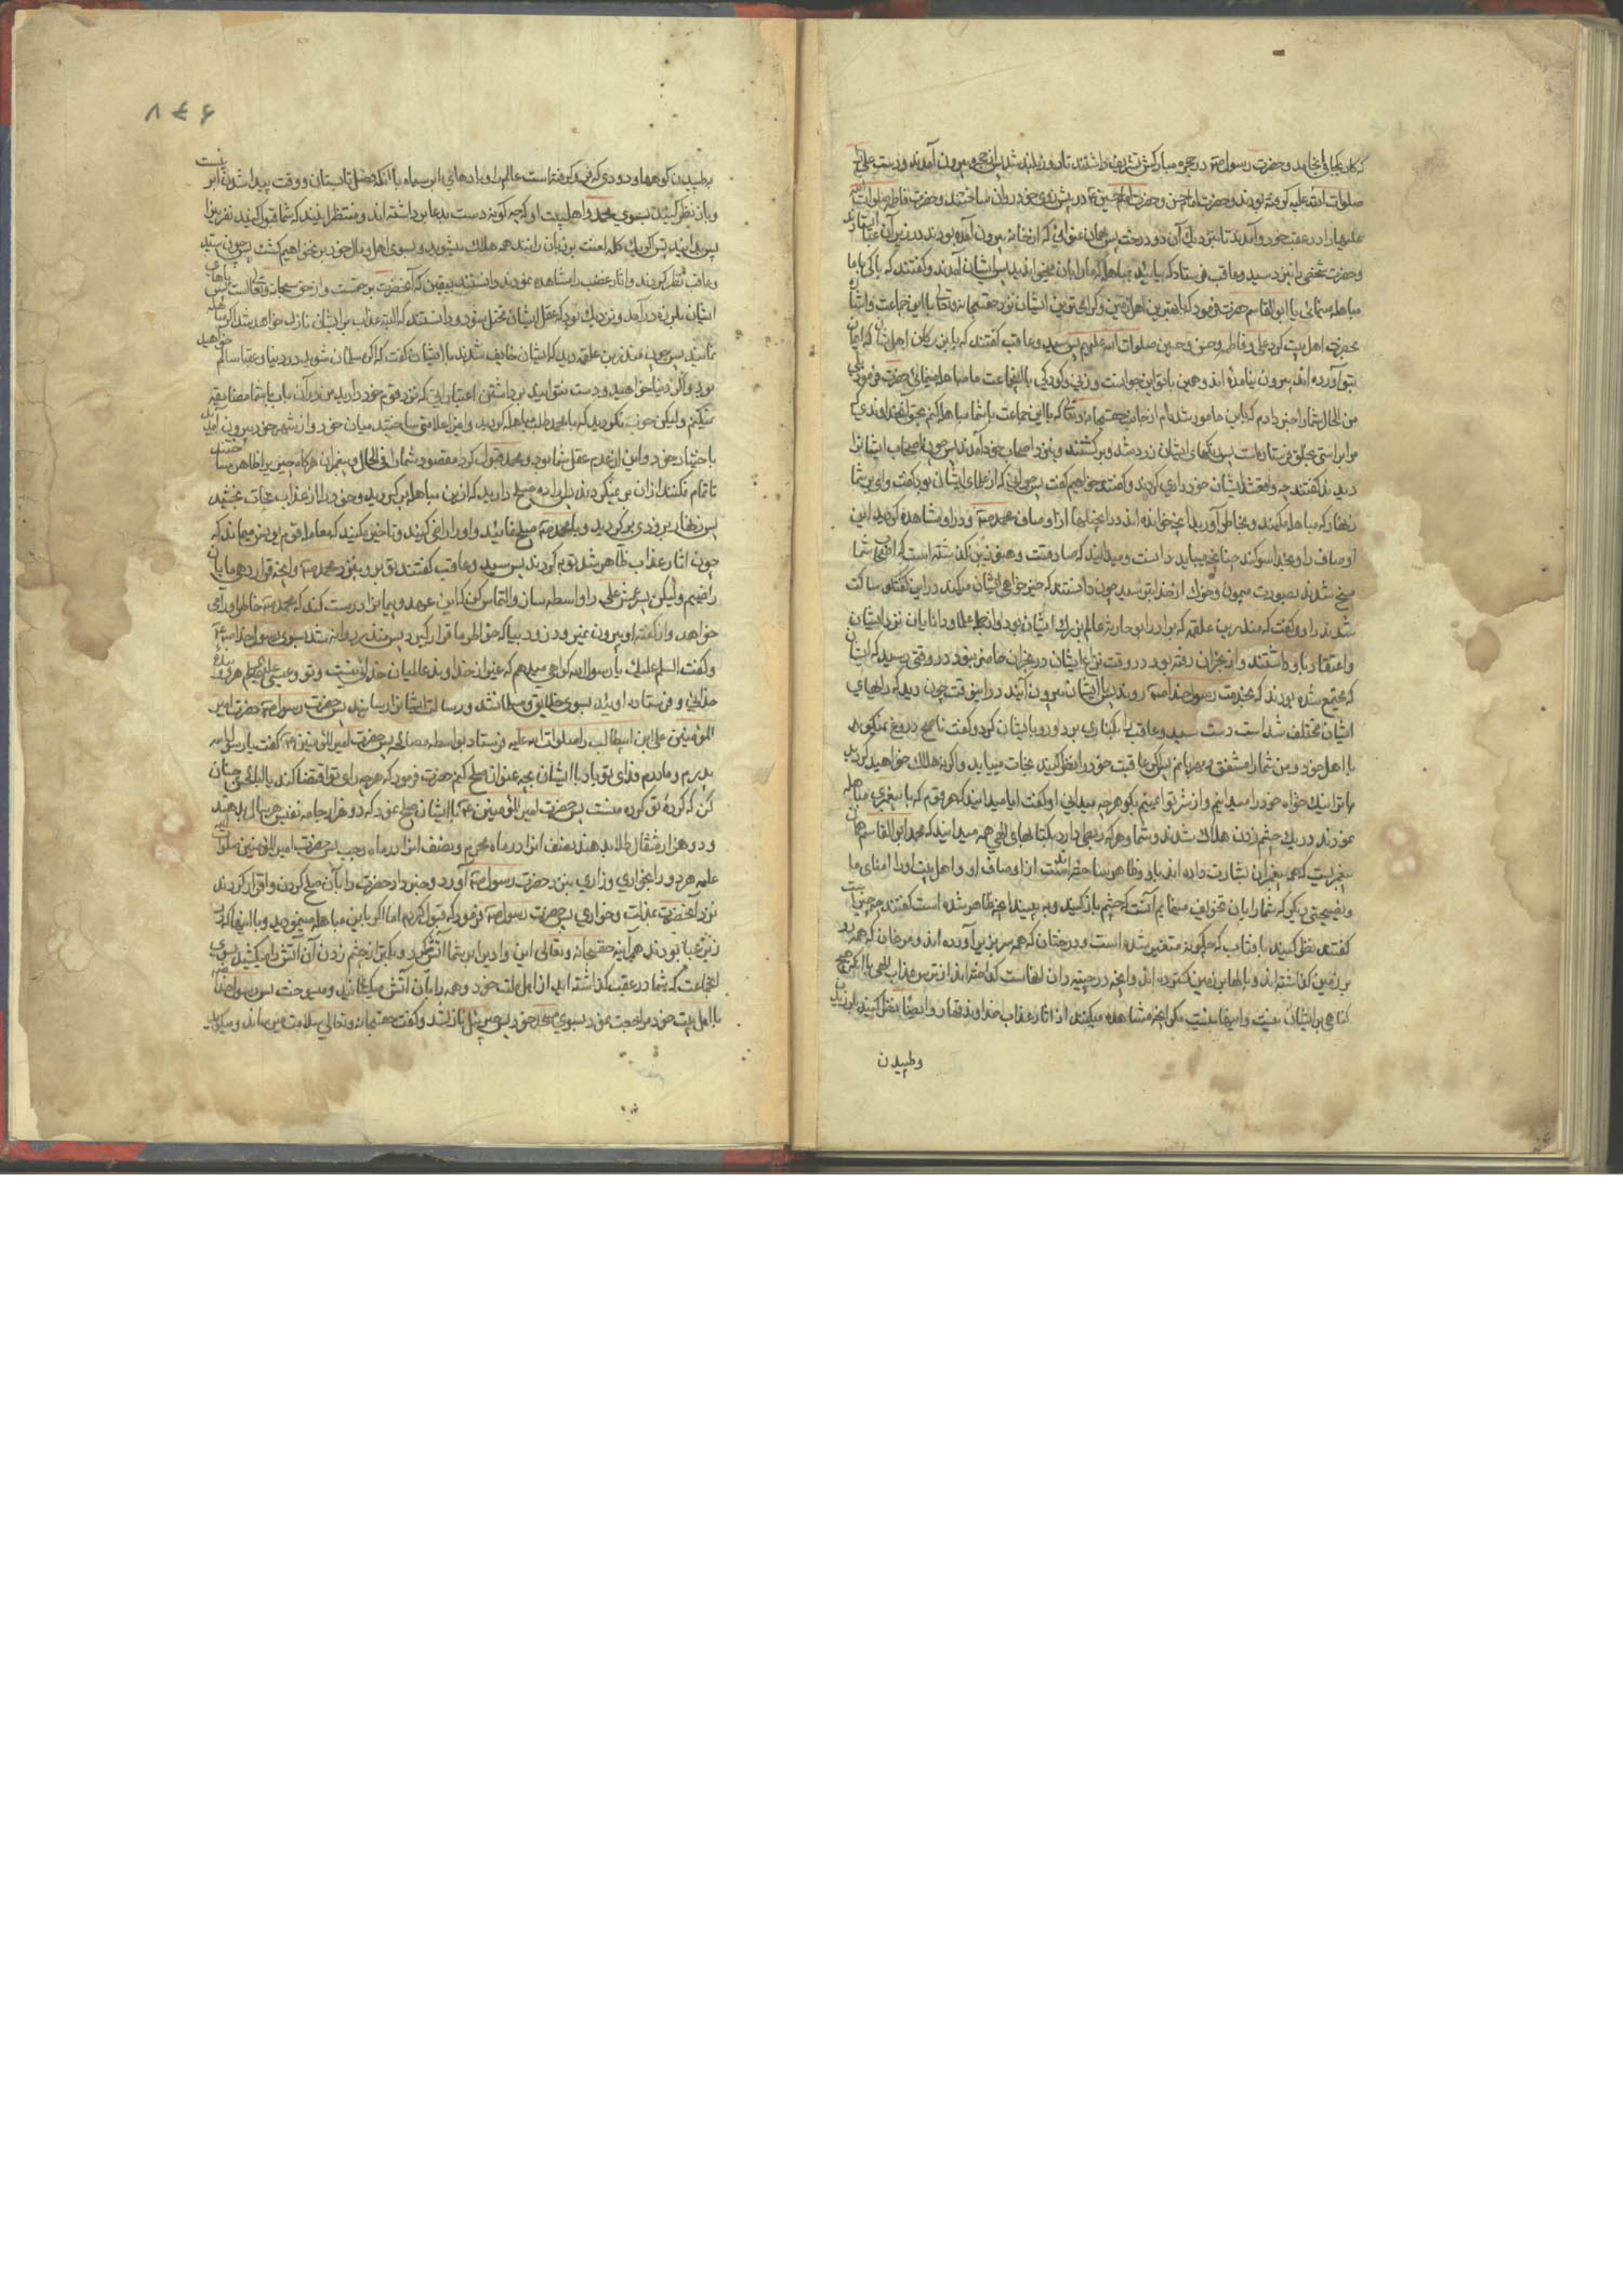 که کار بکجا می‌انجامد و حضرت رسول ص در حجره مبارکش تشریف داشتند تا روز بلند شد پس از حجره بیرون آمدند و دست علی را
صلوات الله علیه گرفته بودند و حضرت امام حسن و حضرت امام حسین ع در پیش روی خود روان ساختند و حضرت فاطمه صلوات الله
علیها را در عقب خود و آمدند تا نزدیک آن دو درخت پس بهمان عنوانی که از خانه بیرون آمده بودند در زیر آن عبا ایستادند
و حضرت شخصی را نزد سید و عاقب فرستاد که بیائید بمباهله که ما را بآن میخواندید پس ایشان آمدند و گفتند که با کی با ما
مباهله مینمائی یا ابو القاسم حضرت فرمود که با بهترین اهل زمین و گرامی‌ترین ایشان نزد حقسبحانه وتعالی با این جماعت و اشاره
بحضرت اهل بیت کرد علی و فاطمه و حسن و حسین صلوات الله علیهم پس سید و عاقب گفتند که با بزرگان اهل شان که ایمان
بتو آورده اند بیرون نیامده اند و همین با تو این جوانست و زنی و کودکی با اینجماعت با ما مباهله مینمائی حضرت فرمود بلی
من الحال شما را خبر دادم که باین مامور شده‌ام از جانب حقسبحانه وتعالی که با این جماعت با شما مباهله کنم بحق آنخداوندی که
مرا براستی بخلق فرستاده است پس رنگهای ایشان زرد شد و برگشتند و بنزد اصحاب خود آمدند پس چون اصحاب ایشانرا
دیدند گفتند چه واقع شد ایشان خود داری کردند و گفتند خواهیم گفت پس جوانی که از علمای ایشان بود گفت وای بر شما
زنهار که مباهله مکنید و بخاطر آورید آنچه خوانده اید در انجیلها از اوصاف محمد ص و در او مشاهده کردید این
اوصاف را و بخدا سوگند چنانچه میباید دانست و میدانید که صادقست و هنوز دیری نگذشته است که اصحاب شما
مسخ شدند بصورت میمون و خوک از خدا بترسید چون دانستند که خیر خواهی ایشان میکند در این گفتگو ساکت
شدند راوی گفت که منذر بن علقمه که برادر ابو حارثه عالم بزرگ ایشان بود و از جمله علما و دانایان نزد ایشان
و اعتقاد باو داشتند و از نجران رفته بود در وقت نزاع ایشان در نجران حاضر نبود در وقتی رسید که ایشان
که مجتمع شده بودند که بخدمت رسول خدا ص روند با ایشان بیرون آمد در این وقت چون دید که رایهای
ایشان مختلف شده است دست سید و عاقب را بکناری برد و رو بایشان کرد و گفت ناصح دروغ نمیگوید
با اهل خود و من شما را مشفق و مهربانم پس اگر عاقبت خود را نظر کنید نجات مییابید و اگر نه هلاک خواهید گردید
ما ترا نیک خواه خود را میدانیم و از شر تو ایمنیم بگو هرچه میدانی او گفت ایا میدانید که هر قوم که با پیغمبری مباهله
نمودند در یک چشم زدن هلاک شدند و شما و هر که ربطی دارد بکتابهای الهی همه میدانید که محمد ابو القاسم همان
پیغمبریست که همه پیغمبران بشارت داده اند باو و ظاهر ساخته اند از اوصاف او و اهل بیت او را امنای ما
و نصیحتی دیگر که شما را بآن تخویف مینمایم آنست که چشم باز کنید و به بینید آنچه ظاهر شده است گفتند چه چیز است
گفتند نظر کنید بآفتاب که چگونه متغیر شده است و درختان که همه سر بزیر آورده اند و مرغان که همه رو
بر زمین گذاشته اند و بالها بر زمین گسترده اند و آنچه در چینه دان آنهاست انداخته اند از ترس عذاب الهی با آنکه هیچ
گناهی بر ایشان نیست و اینها نیست مگر آنچه مشاهده میکنند از اثار عقاب خداوند قهار و ایضا نظر کنید بلرزیدن
وطپیدن
۸۴۶
وطپیدن کوهها و دودی که فرو گرفته است عالم را و پارهای ابر سیاه با آنکه فصل تابستان و وقت پیدا شدن ابر نیست
و باز نظر کنید بسوی محمد و اهل بیت او که چگونه دست بدعا برداشته اند و منتظر اینند که شما قبول کنید نفرین را
پس بدانید پس اگر یک کلمه لعنت بر زبان رانند همه هلاک میشوید و بسوی اهل و مال خود بر نخواهیم گشت پس چون سید
و عاقب نظر کردند و آثار غضب را مشاهده نمودند و دانستند بیقین که آنحضرت بر حقست و از حق سبحانه وتعالی است پس پاهای
ایشان بلرزه در آمد و نزدیک بود که عقل ایشان مختل شود و دانستند که البته عذاب بر ایشان نازل خواهد شد اگر مباهله
نمایند پس چون منذر بن علقمه دید که ایشان خایف شدند با ایشان گفت که اگر مسلمان شوید در دنیا و عقبا سالم خواهید
بود و اگر دنیا خواهید و دست نتوانید برداشتن از اعتباری که نزد قوم خود دارید من در آن باب با شما مضایقه
نمیکنم ولیکن خوب نکردید که با محمد طلب مباهله کردید و این را علامتی ساختید میان خود و از شهر خود بیرون آمدید
باختیار خود و این از عدم عقل شما بود و محمد قبول کرد مقصود شما را فی الحال و پیغمبران هر گاه چیزی را ظاهر ساختند
تا تمام نکنند از آن بر نمیگردند پس اگر اراده صلح دارید که از این مباهله بر گردید و خود را از عذاب نجات بخشید
پس زنهار بزودی برگردید و با محمد ص صلح نمائید و او را راضی کنید و تاخیر مکنید که معامله قوم یونس میماند که
چون اثار عذاب ظاهر شد توبه کردند پس سید و عاقب گفتند تو برو بنزد محمد ص و آنچه قرار دهی ما بآن
راضییم ولیکن پسر عمش علی را واسطه ساز و التماس کن که این عهد و پیمانرا درست کند که محمد ص خاطر او را می
خواهد و از گفته او بیرون نمیرود و زود بیا که خواطر ما قرار گیرد پس منذر روانه شد بسوی رسول خدا ص
و گفت السلام علیک یا رسول الله گواهی میدهم که غیر از خداوند عالمیان خدائی نیست و تو و عیسی علیهما السلام هر دو بنده
خدائی و فرستاده اوئید بسوی خلایق و مسلمان شد و رسالت ایشانرا رسانید پس حضرت رسول ص حضرت امیر
المؤمنین علی ابن ابیطالب را صلوات الله علیه فرستاد بواسطه مصالحه پس حضرت امیر المؤمنین ع گفت یا رسول الله
پدرم و مادرم فدای تو باد با ایشان بچه عنوان صلح کنم حضرت فرمود که هرچه رای تو اقتضا کند یا ابا الحسن چنان
کن که کرده تو کرده منست پس حضرت امیر المؤمنین ع با ایشان صلح نمود که دو هزار جامه نفیس هر سال بدهند
و دو هزار مثقال طلا بدهند نصف آنرا در ماه محرم و نصف آنرا در ماه رجب پس حضرت امیر المؤمنین صلوات الله
علیه هر دو را بخواری و زاری بنزد حضرت رسول ص آورد و خبر داد حضرت را بآن صلح کردن و اقرار کردند
نزد آنحضرت بمذلت و خواری پس حضرت رسول ص فرمود که قبول کردم اما اگر با من مباهله مینمودید و با اینها که در
زیر عبا بودند هر آینه حقسبحانه وتعالی این وادی را بر شما آتش میکرد و بکمتر از چشم زدن آن آتش را میکشید بسوی
آنجماعت که شما در عقب گذاشته اید از اهل ملت خود و همه را بآن آتش میسوخت پس رسول خدا ص
با اهل بیت خود مراجعت نمود بسوی مسجد خود پس جبرئیل نازل شد و گفت حقسبحانه وتعالی سلامت میرساند و میگوید